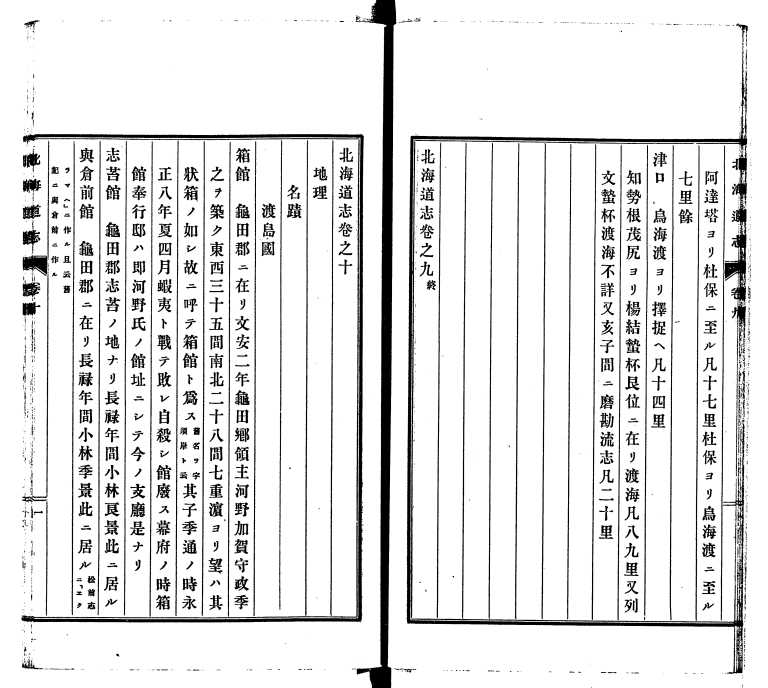 阿達塔ヨリ杜保ニ至ル凡十七里杜保ヨリ鳥海渡ニ至ル
七里餘
津口 鳥海渡ヨリ擇捉ヘ凡十四里
知勢根茂尻ヨリ楊結蟄杯艮位ニ在リ渡海凡八九里又列
文蟄杯渡海不詳又亥子間ニ磨勘流志凡二十里
北海道志卷之九終
北海道志卷之十
地理
名蹟
渡島國
箱館 龜田郡ニ在リ文安二年龜田鄕領主河野加賀守政季
之ヲ築ク東西三十五間南北二十八間七重濵ヨリ望ハ其
狀箱ノ如シ故ニ呼テ箱館ト爲ス舊名ヲ宇須岸ト云其子季通ノ時永
正八年夏四月蝦夷ト戰テ敗レ自殺シ館廢ス幕府ノ時箱
館奉行邸ハ即河野氏ノ館址ニシテ今ノ支廳是ナリ
志苔館 龜田郡志苔ノ地ナリ長祿年間小林良景此ニ居ル
與倉前館 龜田郡ニ在リ長祿年間小林季景此ニ居ル松前志ニ「エク
ラマヘ」ニ作ル且云舊記ニ與倉前ニ作ル
北海道志 卷十 一